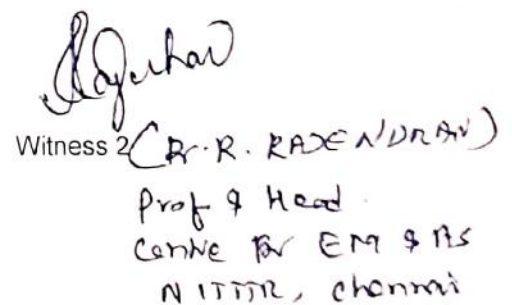 Witness 2 (Dr. R. RAJENDRAN)
Prof & Head
Centre for EM &
NITTTR, Chennai